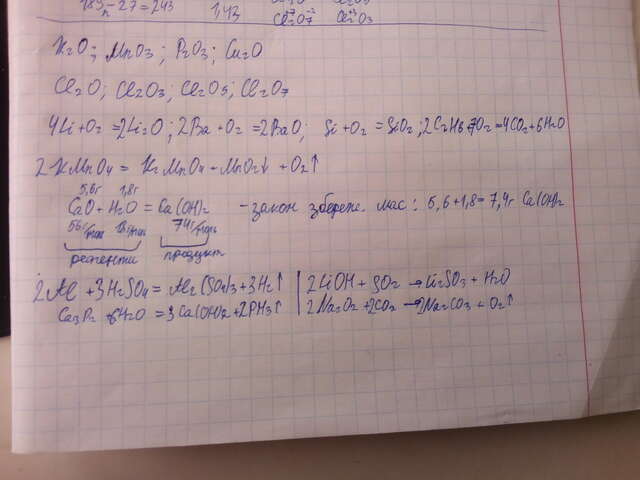 189n-27=243 1,43
Cl₂⁺⁷O₇⁻² Cl₂⁺³O₃
K₂O; MnO₃; P₂O₃; Cu₂O
Cl₂O; Cl₂O₃; Cl₂O₅; Cl₂O₇
4Li+O₂=2Li₂O; 2Ba+O₂=2BaO; Si+O₂=SiO₂; 2C₂H₆+7O₂=4CO₂+6H₂O
2KMnO₄=K₂MnO₄-MnO₂↓+O₂↑
5,6г 1,8г
CaO+H₂O=Ca(OH)₂ -закон збереж. мас: 5,6+1,8=7,4г Ca(OH)₂
56г/моль 18г/моль 74г/моль
реагенти продукт
2Al+3H₂SO₄=Al₂(SO₄)₃+3H₂↑ 2LiOH+SO₂→Li₂SO₃+H₂O
Ca₃P₂ 6H₂O=3Ca(OH)₂+2PH₃↑ 2Na₂O₂+2CO₂→2Na₂CO₃+O₂↑